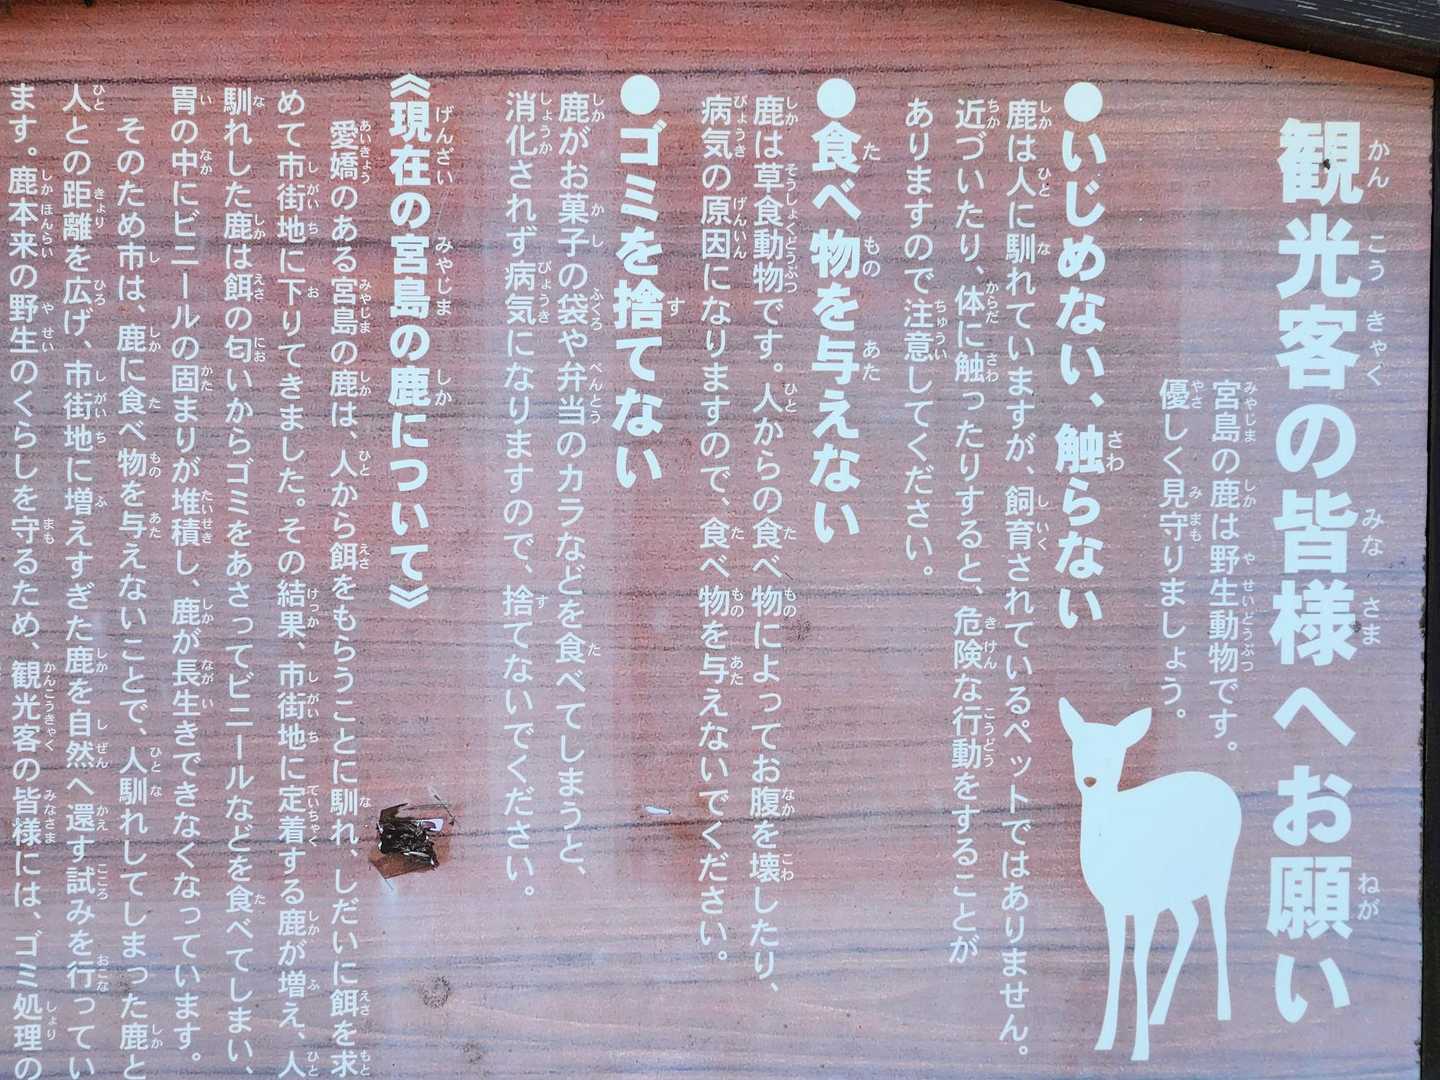 観光客の皆様へお願い
宮島の鹿は野生動物です。
優しく見守りましょう。
●いじめない、触らない
鹿は人に馴れていますが、飼育されているペットではありません。
近づいたり、体に触ったりすると、危険な行動をすることが
ありますので注意してください。
●食べ物を与えない
鹿は草食動物です。人からの食べ物によってお腹を壊したり、
病気の原因になりますので、食べ物を与えないでください。
●ゴミを捨てない
鹿がお菓子の袋や弁当のカラなどを食べてしまうと、
消化されず病気になりますので、捨てないでください。
《現在の宮島の鹿について》
愛嬌のある宮島の鹿は、人から餌をもらうことに馴れ、しだいに餌を求
めて市街地に下りてきました。その結果、市街地に定着する鹿が増え、人
馴れした鹿は餌の匂いからゴミをあさってビニールなどを食べてしまい、
胃の中にビニールの固まりが堆積し、鹿が長生きできなくなっています。
そのため市は、鹿に食べ物を与えないことで、人馴れしてしまった鹿と
人との距離を広げ、市街地に増えすぎた鹿を自然へ還す試みを行ってい
ます。鹿本来の野生のくらしを守るため、観光客の皆様には、ゴミ処理の